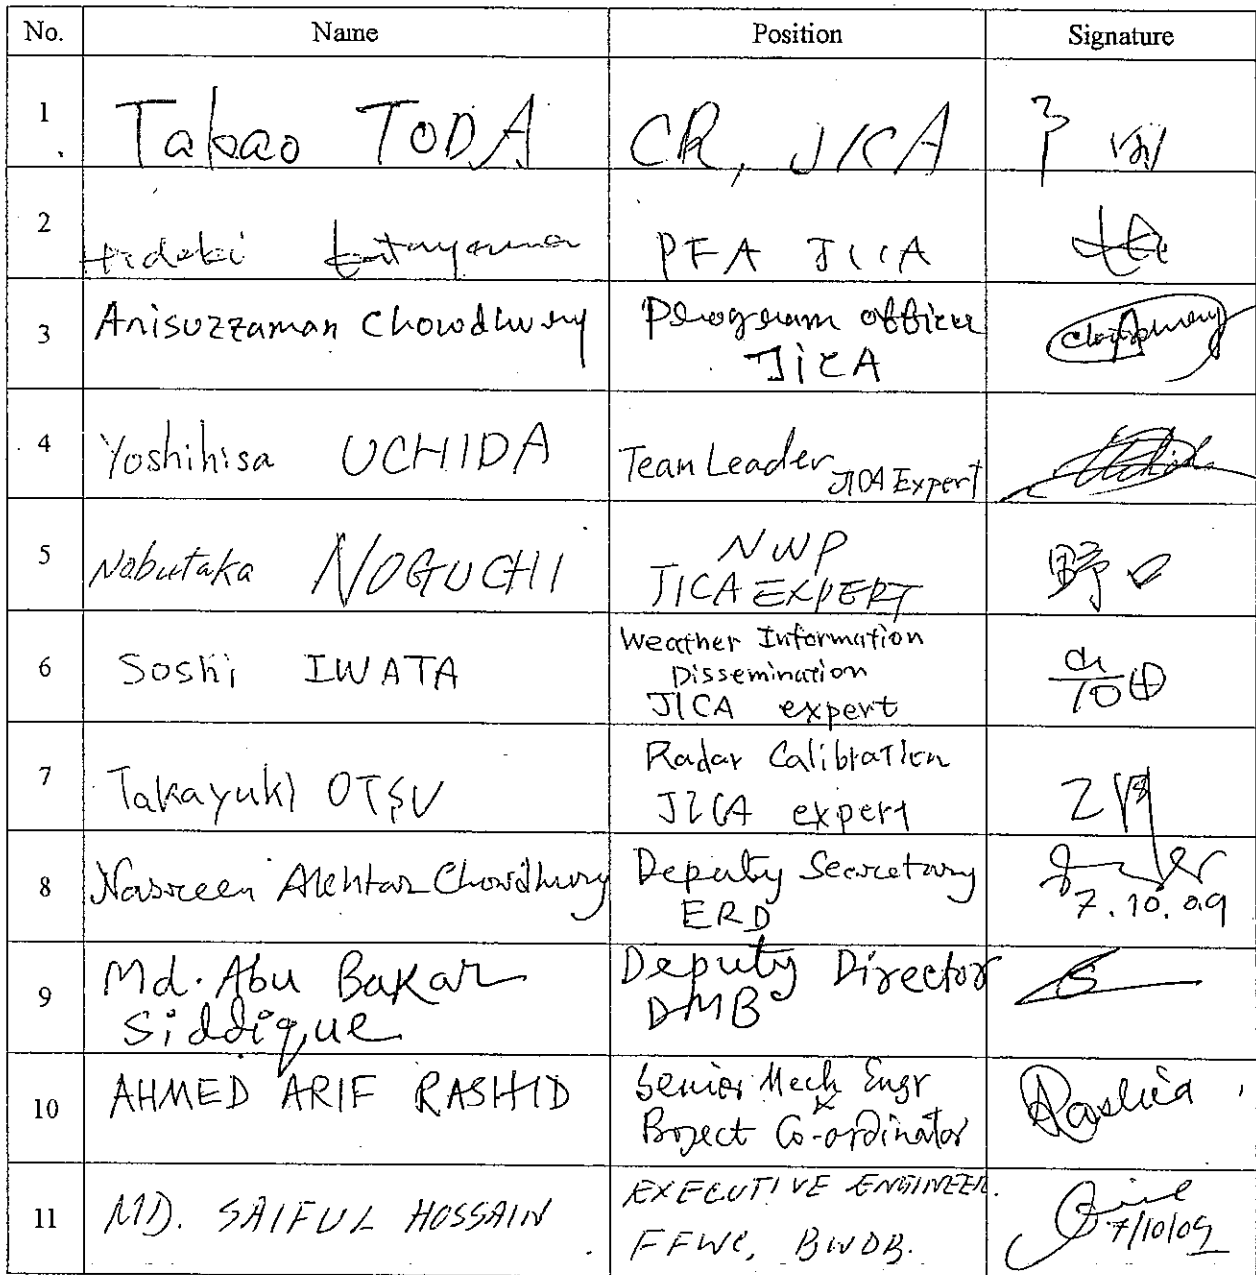 No. Name Position Signature
1 Takao TODA CR, JICA 戸田
2 Hideki Katayama PFA JICA
3 Anisuzzaman Chowdhury Program Officer
JICA Chowdhury
4 Yoshihisa UCHIDA Team Leader JICA Expert
5 Nobutaka NOGUCHI NWP
JICA EXPERT 野口
6 Soshi IWATA Weather Information
Dissemination
JICA expert
7 Takayuki OTSU Radar Calibration
JICA expert
8 Nasreen Akhtar Chowdhury Deputy Secretary
ERD 7.10.09
9 Md. Abu Bakar
Siddique Deputy Director
DMB
10 AHMED ARIF RASHID Senior Mech Engr
&
Project Co-ordinator Rashid
11 MD. SAIFUL HOSSAIN EXECUTIVE ENGINEER.
FFWC, BWDB. 7/10/09